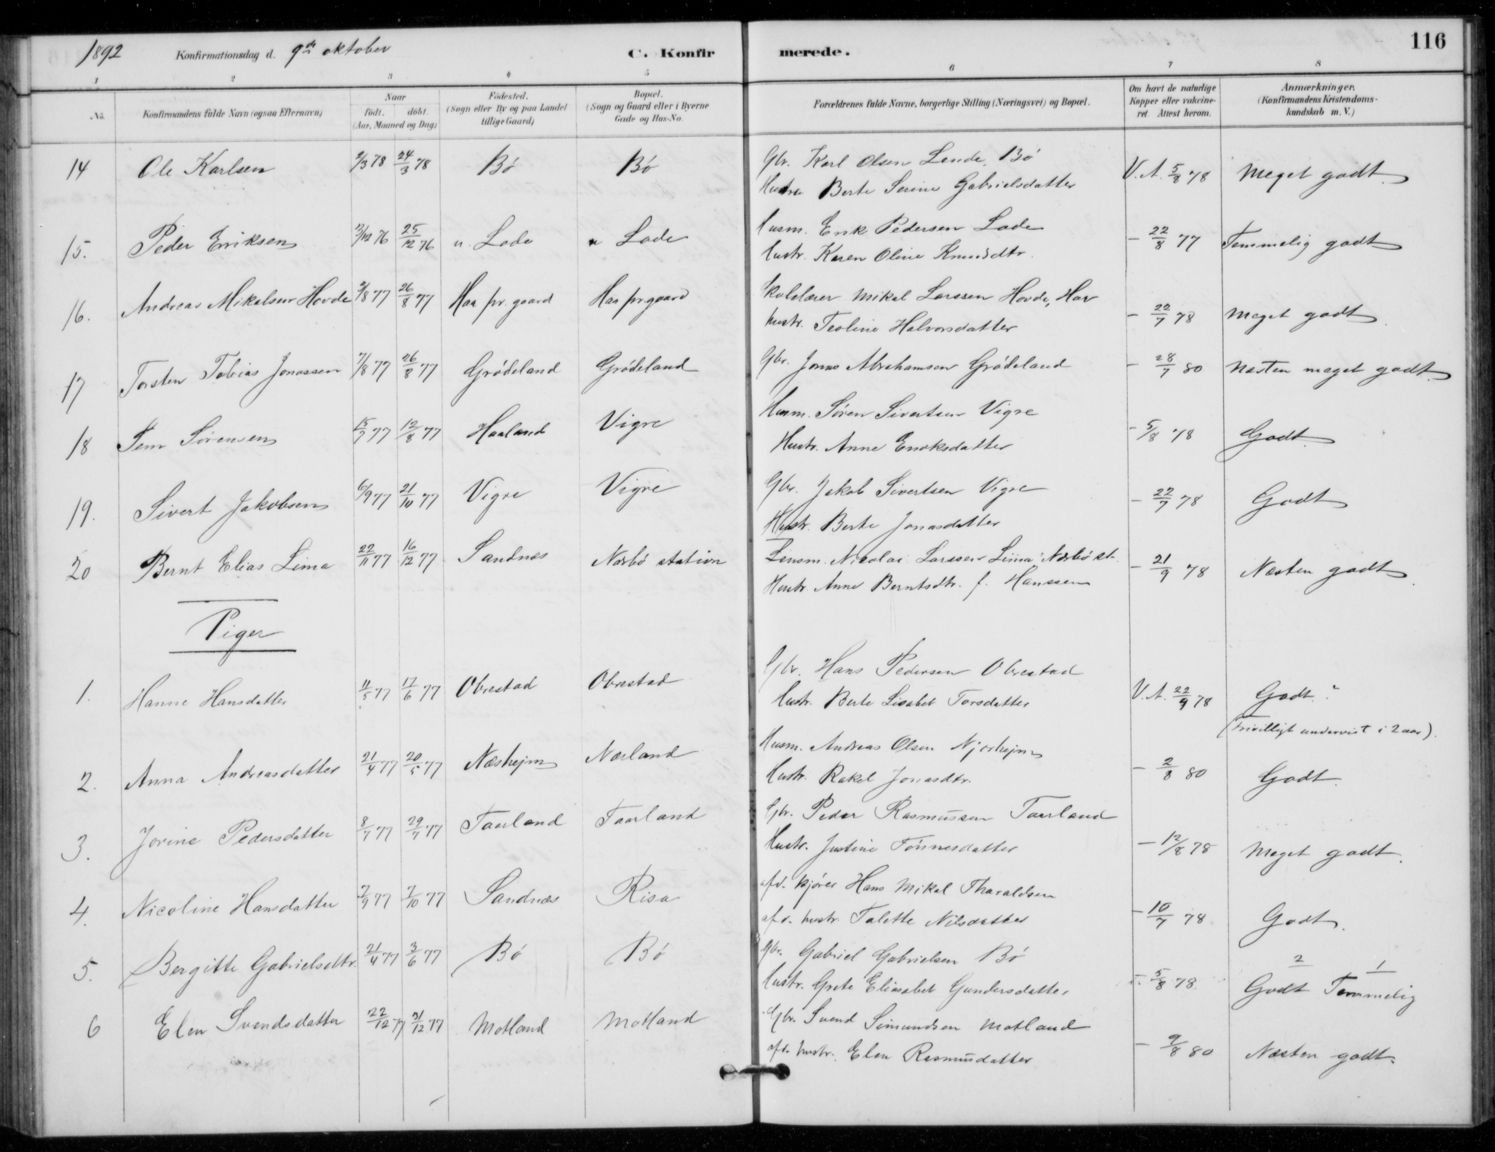 1892 Konfirmationsdag d. 9de oktober C. Konfirmerede. 116
1 2 3 4 5 6 7 8
No. Konfirmandens fulde Navn (ogsaa Efternavn) Naar født. døbt. (Aar, Maaned og Dag) Fødested. (Sogn eller By og paa Landet tillige Gaard) Bopæl. (Sogn og Gaard eller i Byerne Gade og Hus-No. Forældrenes fulde Navne, borgerlige Stilling (Næringsvei) og Bopæl. Om havt de naturlige Kopper eller vaccineret Attest herom. Anmærkninger. (Konfirmandens Kristendomskundskab m. V.)
14 Ole Karlsen 9/3 78 24/3 78 Bø Bø Gbr. Karl Olsen Lende, Bø
Hustru Berte Serine Gabrielsdatter V. A. 5/8 78 Meget godt
15. Peder Eriksen 76 25/12 76 n. Lode n Lode Husm. Erik Pedersen Lode
Hustr. Karen Oline Knudsdtr. – 22/8 77 Temmelig godt
16. Andreas Mikalsen Hovde 2/8 77 26/8 77 Haa pr. gaard Haa prgaard Skolelærer Mikal Larssen Hovde, Haa
Hustr. Teoline Halvorsdatter – 22/7 78 Meget godt
17 Torsten Tobias Jonassen 7/8 77 26/8 77 Grødeland Grødeland Gbr. Jonas Abrahamsen Grødeland – 28/7 80 Næsten meget godt
18 Sem Sørensen 15/7 77 12/8 77 Haaland Vigre Husm. Søren Sivertsen Vigre
Hustr. Anne Enoksdatter – 5/8 78 Godt
19. Sivert Jakobsen 6/9 77 21/10 77 Vigre Vigre Gbr. Jakob Sivertsen Vigre
Hustr. Berte Jonasdatter – 22/7 78 Godt
20 Bernt Elias Lima 22/11 77 16/12 77 Sandnes Nærbø station Lensm. Nicolai Larssen Lima Nærbø st.
Hustr. Anne Berntsdtr. f. Hanssen – 21/9 78 Næsten godt
Piger
1. Hanne Hansdatter 11/5 77 17/6 77 Obrestad Obrestad Gbr. Hans Pedersen Obrestad
Hustr. Berte Lisabet Torsdatter V. A. 22/9 78 Godt.
(Frivilligt undervist i 2 aar).
2. Anna Andreasdatter 21/4 77 20/5 77 Næshejm Nærland Husm. Andreas Olsen Njærhejm
Hustr. Rakel Jonasdtr. – 2/8 80 Godt
3. Jorine Pedersdatter 8/7 77 29/7 77 Taarland Taarland Gbr. Peder Rasmussen Taarland
Hustr. Justine Tønnesdatter – 12/8 78 Meget godt.
4. Nicoline Hansdatter 7/9 77 7/10 77 Sandnes Risa afd. Hans Mikal Tharaldsen
afd. hustr. Talette Nilsdatter – 10/7 78 Godt.
5. Bergitte Gabrielsdtr. 21/4 77 3/6 77 Bø Bø Gbr. Gabriel Gabrielsen Bø
Hustr. Grete Elisabet Gundersdatter – 5/8 78 2 1 Godt Temmelig
6 Elen Svendsdatter 22/12 77 31/12 77 Motland Motland Gbr. Svend Simundsen Motland
afd. hustr. Elen Rasmusdatter – 9/8 80 Næsten godt.